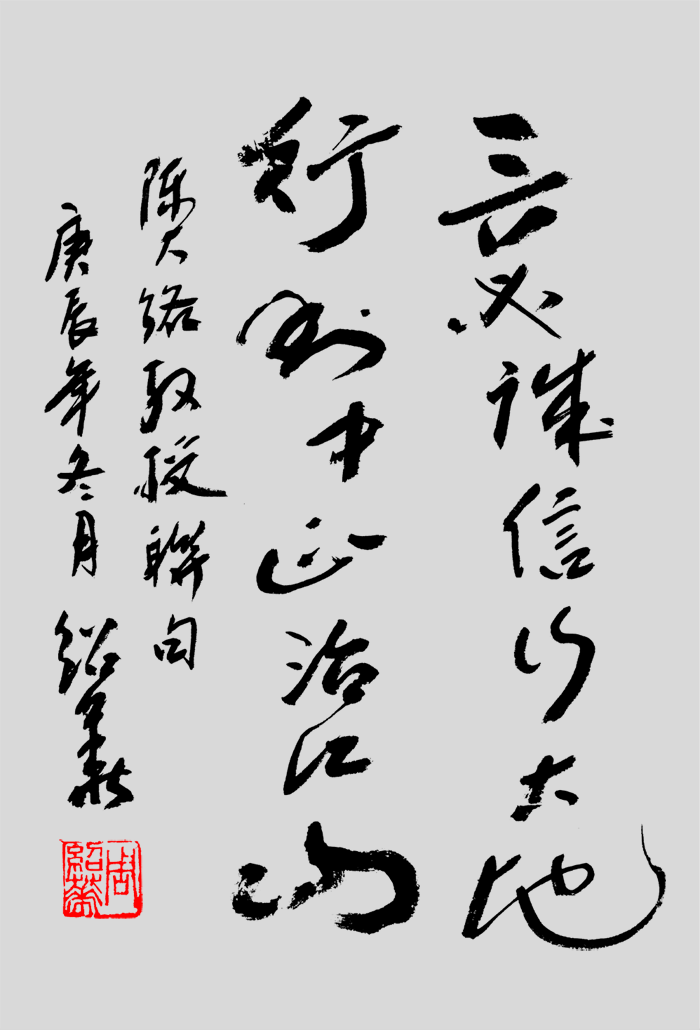 言必诚信行大地
行中正治江山
陈大络教授聯句
庚辰年冬月绍
周紹